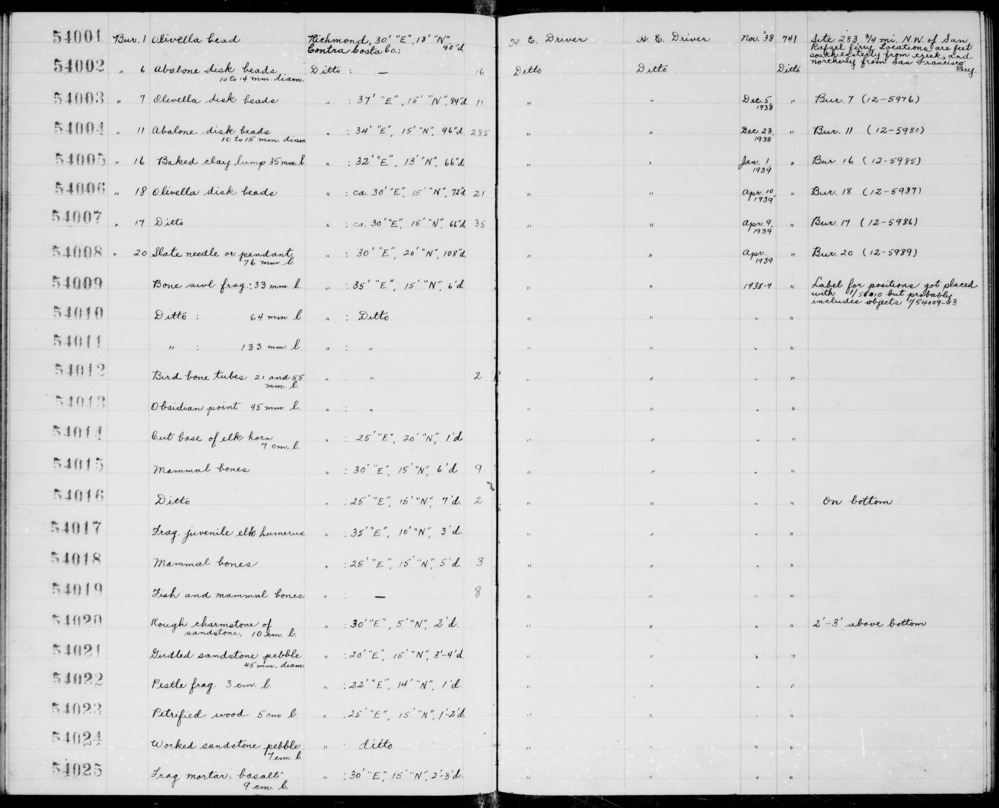 54001 Bur. 1 Olivella bead Richmond, 30' "E", 13' "N", 90"d Contra Costa Co: H. E. Driver H. E. Driver Nov. '38 741 Site 283, 3/4 mi. N.W. of San Rafael ferry. Locations are feet
54002 " 6 Abalone disk beads 10 to 14 mm. diam. Ditto : — 16 Ditto Ditto Ditto northerly from San Francisco Bay.
54003 " 7 Olivella disk beads " : 37' "E", 15' "N", 84"d 11 " " Dec. 5, 1938 " Bur. 7 (12-5976)
54004 " 11 Abalone disk beads 10 to 15 mm. diam " : 34' "E", 15' "N", 96"d 235 " " Dec. 23, 1938 " Bur. 11 (12-5980)
54005 " 16 Baked clay lump 35 mm. l. " : 32' "E", 13' "N", 66"d " " Jan. 1 1939 " Bur 16 (12-5985)
54006 " 18 Olivella disk beads " : ca. 30' "E", 15' "N", 72"d 21 " " Apr. 10, 1939 " Bur. 18 (12-5987)
54007 " 17 Ditto " : ca. 30' "E", 15' "N", 66"d 35 " " Apr. 9, 1939 " Bur. 17 (12-5986)
54008 " 20 Slate needle or pendant 76 mm. l " : 30' "E", 20' "N", 108"d " " Apr. 1939 " Bur. 20 (12-5989)
54009 Bone awl frag.: 33 mm. l. " : 35' "E", 15' "N", 6'd " " 1938-9 " Label for positions got placed with 1/54010 but probably includes objects 1/54009-13
54010 Ditto : 64 mm l " : Ditto " " " "
54011 " : 133 mm. l. " : " " " " "
54012 Bird bone tubes 21 and 55 mm. l. " " 2 " " " "
54013 Obsidian point 45 mm l. " : " " " " "
54014 Cut base of elk horn 7 cm. l. " : 25' "E", 20' "N", 1'd " " " "
54015 Mammal bones " : 30' "E", 15' "N", 6'd 9 " " " "
54016 Ditto " : 25' "E", 15' "N", 7'd 2 " " " " On bottom
54017 Frag. juvenile elk humerus " : 35' "E", 10' "N", 3'd. " " " "
54018 Mammal bones " : 25' "E", 15' "N", 5'd. 3 " " " "
54019 Fish and mammal bones " : — 8 " " " "
54020 Rough charmstone of sandstone, 10 cm. l. " : 30' "E", 5' "N", 2'd. " " " " 2'-3' above bottom
54021 Girdled sandstone pebble 45 mm. diam " : 20' "E", 15' "N", 3'-4'd " " " "
54022 Pestle frag. 3 cm. l. " : 22' "E", 14' "N", 1'd. " " " "
54023 Petrified wood 5 cm l. " : 25' "E", 15' "N", 1'-2'd. " " " "
54024 Worked sandstone pebble 7 cm. l. " : ditto " " " "
54025 Frag mortar; basalt 9 cm. l. " : 30' "E", 15' "N", 2'-3'd. " " " "